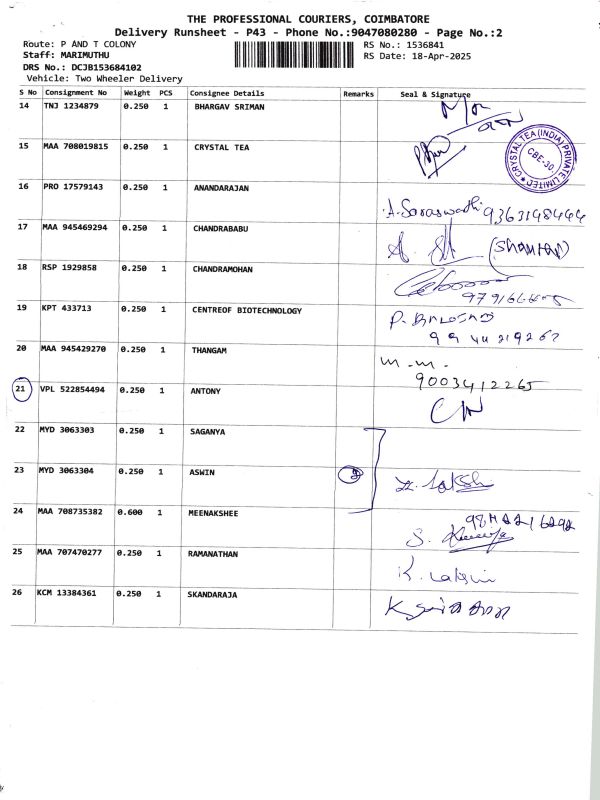 THE PROFESSIONAL COURIERS, COIMBATORE
Delivery Runsheet - P43 - Phone No.:9047080280 - Page No.:2
Route: P AND T COLONY
RS No.: 1536841
Staff: MARIMUTHU
RS Date: 18-Apr-2025
DRS No.: DCJB153684102
Vehicle: Two Wheeler Delivery
S No Consignment No Weight PCS Consignee Details Remarks Seal & Signature
14 TNJ 1234879 0.250 1 BHARGAV SRIMAN
15 MAA 708019815 0.250 1 CRYSTAL TEA
CRYSTAL TEA (INDIA) PRIVATE LIMITED
CBE-30
16 PRO 17579143 0.250 1 ANANDARAJAN
A. Saraswathi 9363148444
17 MAA 945469294 0.250 1 CHANDRABABU
18 RSP 1929858 0.250 1 CHANDRAMOHAN
19 KPT 433713 0.250 1 CENTREOF BIOTECHNOLOGY
20 MAA 945429270 0.250 1 THANGAM
m.m.
9003412265
21 VPL 522854494 0.250 1 ANTONY
22 MYD 3063303 0.250 1 SAGANYA
23 MYD 3063304 0.250 1 ASWIN
24 MAA 708735382 0.600 1 MEENAKSHEE
25 MAA 707470277 0.250 1 RAMANATHAN
26 KCM 13384361 0.250 1 SKANDARAJA